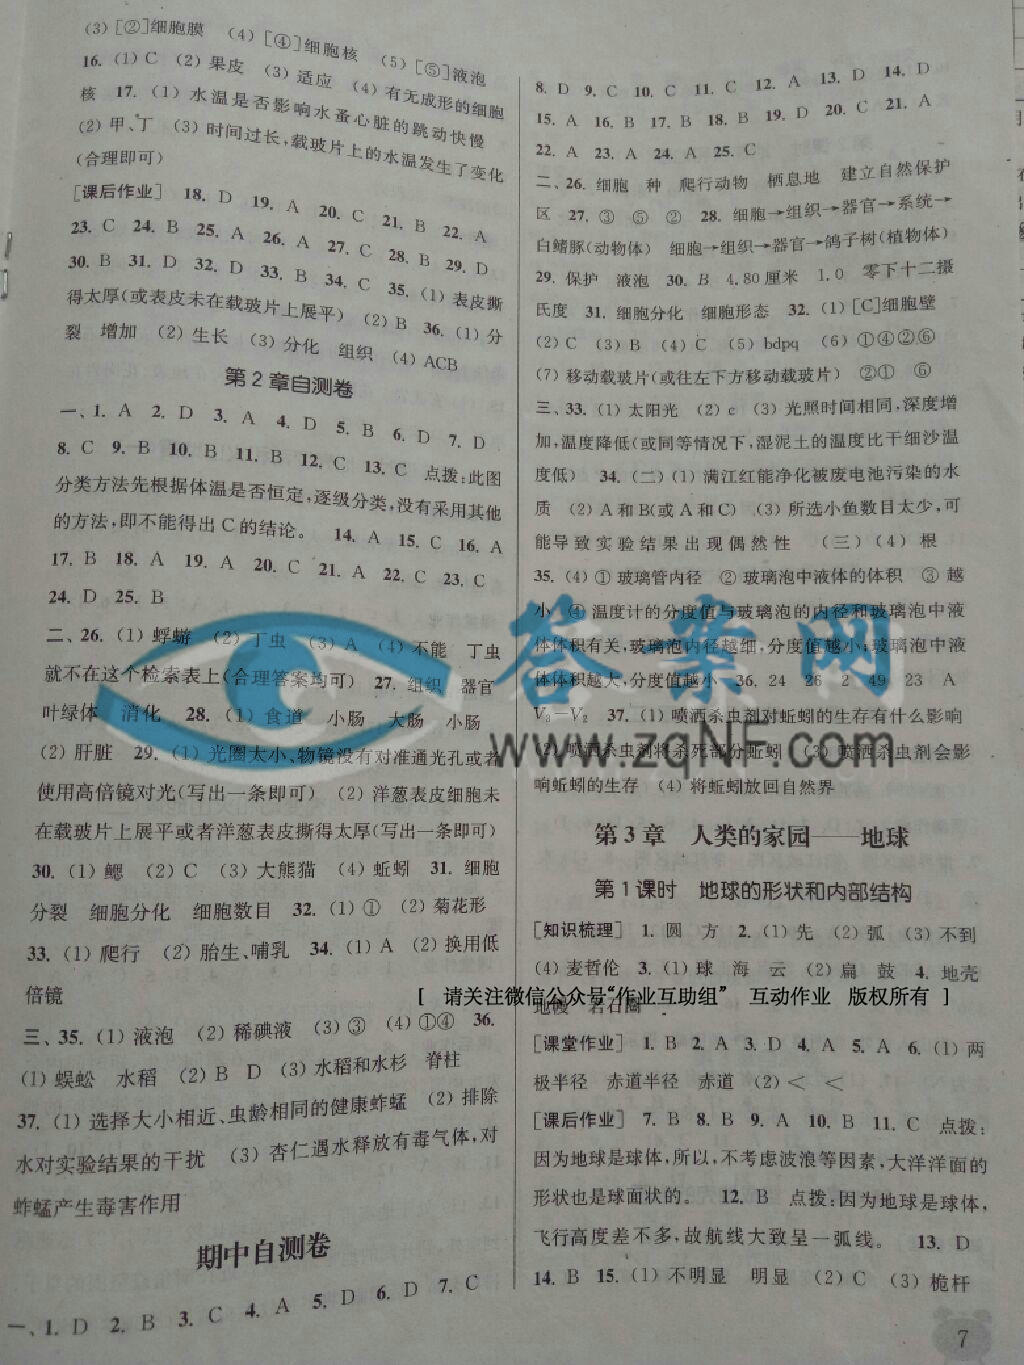 (3)[②]细胞膜 (4)[④]细胞核 (5)[⑤]液泡
16. (1)C (2)果皮 (3)适应 (4)有无成形的细胞
核 17. (1)水温是否影响水蚤心脏的跳动快慢
(2)甲、丁 (3)时间过长,载玻片上的水温发生了变化
(合理即可)
[课后作业] 18. D 19. A 20. C 21. B 22. A
23. C 24. B 25. A 26. A 27. C 28. B 29. D
30. B 31. D 32. D 33. B 34. C 35. (1)表皮撕
得太厚(或表皮未在载玻片上展平) (2)B 36. (1)分
裂 增加 (2)生长 (3)分化 组织 (4)ACB
第2章自测卷
一、1. A 2. D 3. A 4. D 5. B 6. D 7. D
8. C 9. B 10. B 11. B 12. C 13. C 点拨:此图
分类方法先根据体温是否恒定,逐级分类,没有采用其他
的方法,即不能得出C的结论。 14. A 15. C 16. A
17. B 18. A 19. A 20. C 21. A 22. C 23. C
24. D 25. B
二、26. (1)蜉蝣 (2)丁虫 (3)A (4)不能 丁虫
就不在这个检索表上(合理答案均可) 27. 组织 器官
叶绿体 消化 28. (1)食道 小肠 大肠 小肠
(2)肝脏 29. (1)光圈太小、物镜没有对准通光孔或者
使用高倍镜对光(写出一条即可) (2)洋葱表皮细胞未
在载玻片上展平或者洋葱表皮撕得太厚(写出一条即可)
30. (1)鳃 (2)C (3)大熊猫 (4)蚯蚓 31. 细胞
分裂 细胞分化 细胞数目 32. (1)① (2)菊花形
33. (1)爬行 (2)胎生、哺乳 34. (1)A (2)换用低
倍镜
三、35. (1)液泡 (2)稀碘液 (3)③ (4)①④ 36.
(1)蜈蚣 水稻 (2)B D (3)水稻和水杉 脊柱
37. (1)选择大小相近、虫龄相同的健康蚱蜢 (2)排除
水对实验结果的干扰 (3)杏仁遇水释放有毒气体,对
蚱蜢产生毒害作用
期中自测卷
一、1. D 2. B 3. C 4. A 5. D 6. D 7. C
8. D 9. C 10. C 11. C 12. A 13. D 14. D
15. A 16. B 17. B 18. B 19. D 20. C 21. A
22. A 23. A 24. A 25. C
二、26. 细胞 种 爬行动物 栖息地 建立自然保护
区 27. ③ ⑤ ② 28. 细胞→组织→器官→系统→
白鳍豚(动物体) 细胞→组织→器官→鸽子树(植物体)
29. 保护 液泡 30. B 4.80厘米 1.0 零下十二摄
氏度 31. 细胞分化 细胞形态 32. (1)[C]细胞壁
(2)C (3)B (4)C (5)bdpq (6)①④②⑥
(7)移动载玻片(或往左下方移动载玻片) ②① ⑥
三、33. (1)太阳光 (2)c (3)光照时间相同,深度增
加,温度降低(或同等情况下,湿泥土的温度比干细沙温
度低) 34. (二)(1)满江红能净化被废电池污染的水
质 (2)A和B(或A和C) (3)所选小鱼数目太少,可
能导致实验结果出现偶然性 (三)(4)根
35. (4)①玻璃管内径 ②玻璃泡中液体的体积 ③越
小 ④温度计的分度值与玻璃泡的内径和玻璃泡中液
体体积有关,玻璃泡内径越细,分度值越小;玻璃泡中液
体体积越大,分度值越小 36. 24 26 2 49 23 A
V₃－V₂ 37. (1)喷洒杀虫剂对蚯蚓的生存有什么影响
(2)喷洒杀虫剂将杀死部分蚯蚓 (3)喷洒杀虫剂会影
响蚯蚓的生存 (4)将蚯蚓放回自然界
第3章 人类的家园——地球
第1课时 地球的形状和内部结构
[知识梳理] 1. 圆 方 2. (1)先 (2)弧 (3)不到
(4)麦哲伦 3. (1)球 海 云 (2)扁 鼓 4. 地壳
地幔 岩石圈
[课堂作业] 1. B 2. A 3. D 4. A 5. A 6. (1)两
极半径 赤道半径 赤道 (2)＜ ＜
[课后作业] 7. B 8. B 9. A 10. B 11. C 点拨:
因为地球是球体,所以,不考虑波浪等因素,大洋洋面的
形状也是球面状的。 12. B 点拨:因为地球是球体,
飞行高度差不多,故航线大致呈一弧线。 13. D
14. B 15. (1)不明显 明显 (2)C (3)桅杆
7
答案网
www.zqNF.com
[ 请关注微信公众号“作业互助组” 互动作业 版权所有 ]